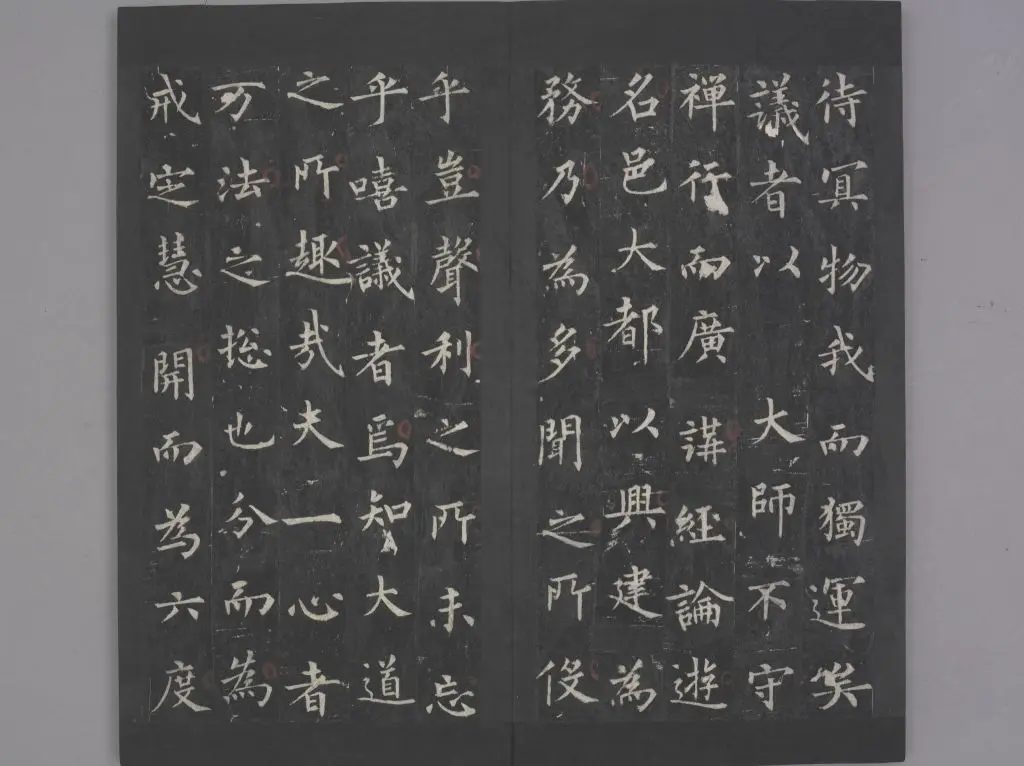 待冥物我而獨運矣
議者以 大師不守
禪行而廣講經論遊
名邑大都以興建為
務乃為多聞之所伇
乎豈聲利之所未忘
乎嘻議者焉知大道
之所趣哉夫一心者
万法之捴也分而為
戒定慧開而為六度